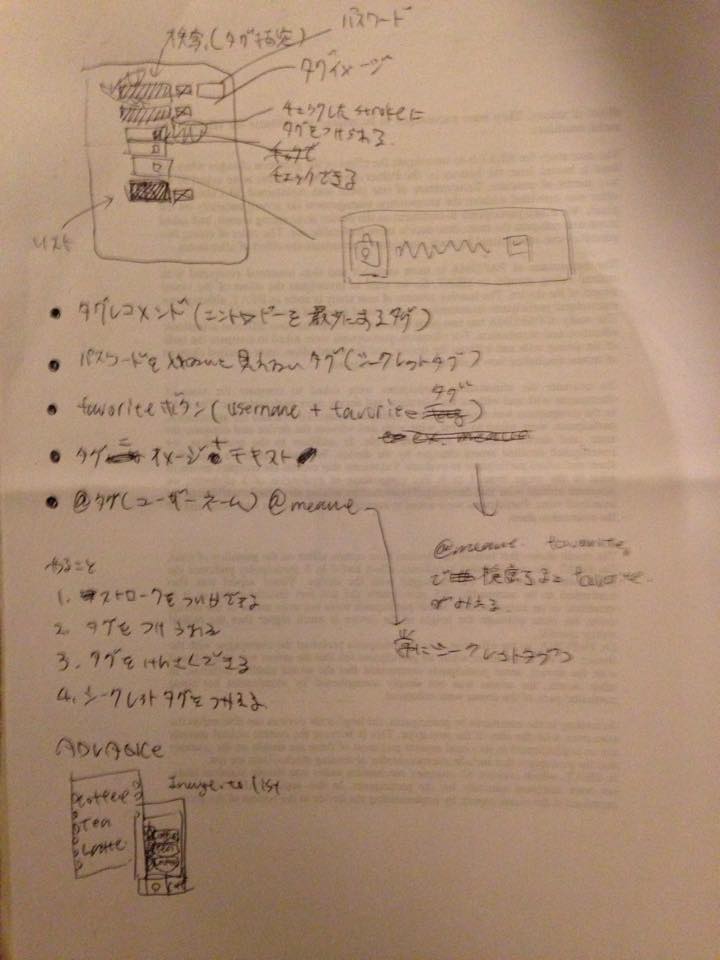 検索(タグ指定)
パスワード
タグイメージ
チェックした strokeに
タグをつけられる
チェックできる
リスト
タグレコメンド(エントロピーを最少にするタグ)
パスワードを入れないと見えないタグ(シークレットタグ)
favoriteボタン(username + favorite タグ)
タグ=イメージ+テキスト
@タグ(ユーザーネーム) @meaue
@meaue favorite
で検索すると favorite
がみえる
常にシークレットタグ
やること
1. ストロークをついかできる
2. タグをつけられる
3. タグをけんさくできる
4. シークレットタグをつかえる
ADVANCE
Image to list
Coffee
Tea
Latte